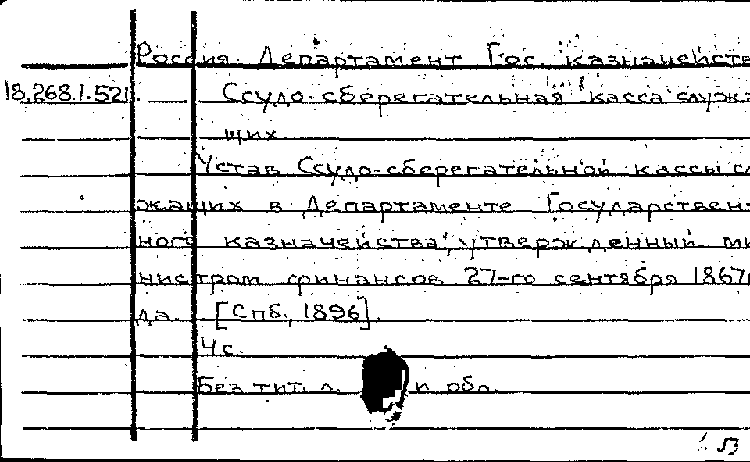 Россия. Департамент Гос. казначейств
18.268.1.521. Ссудо-сберегательная касса служа
щих.
Устав Ссудо-сберегательной кассы сл
жащих в Департаменте Государствен
ного казначейства, утвержденный ми
нистром финансов 27-го сентября 1867г
да. [Спб., 1896].
4 с.
Без тит. л. и обл.